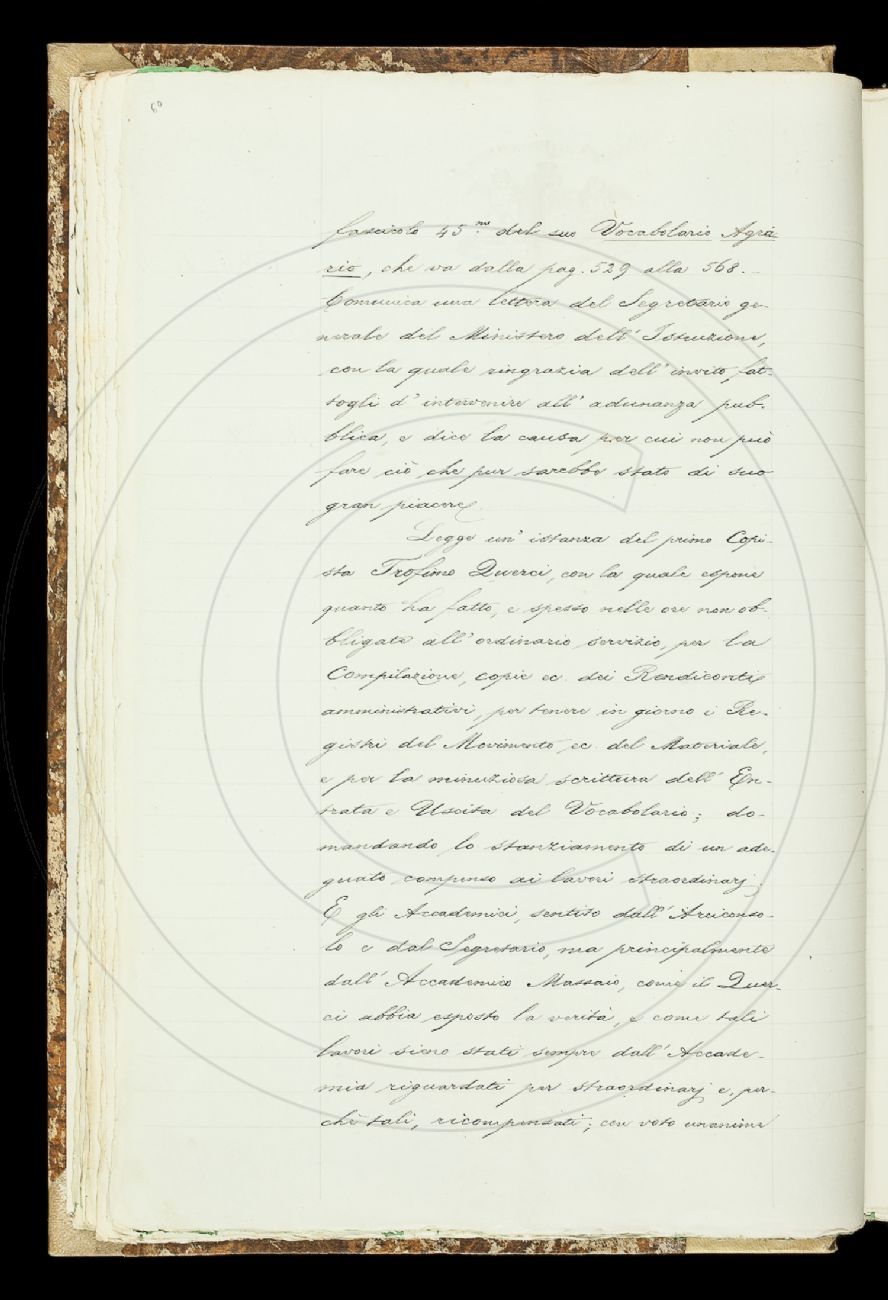 60
fascicolo 45.mo del suo Vocabolario Agra
rio, che va dalla pag. 529 alla 568. -
Comunica una lettera del Segretario ge-
nerale del Ministero dell' Istruzione,
con la quale ringrazia dell' invito fat-
togli d' intervenire all' adunanza pub-
blica, e dice la causa per cui non può
fare ciò che pur sarebbe stato di suo
gran piacere.
Legge un' istanza del primo Copi-
sta Trofimo Querci, con la quale espone
quanto ha fatto, e spesso nelle ore non ob-
bligate all' ordinario servizio, per la
Compilazione, copie ec. dei Rendiconti
amministrativi, per tenere in giorno i Re-
gistri del Movimento, ec. del Materiale,
e per la minuziosa scrittura dell' En-
trata e Uscita del Vocabolario; do-
mandando lo stanziamento di un ade-
guato compenso ai lavori straordinarj;
E gli Accademici, sentito dall' Arciconso-
lo e dal Segretario, ma principalmente
dall' Accademico Massaio, come il Quer-
ci abbia esposto la verità, e come tali
lavori sieno stati sempre dall' Accade-
mia riguardati per straordinarj e, per-
chè tali, ricompensati; con voto unanime